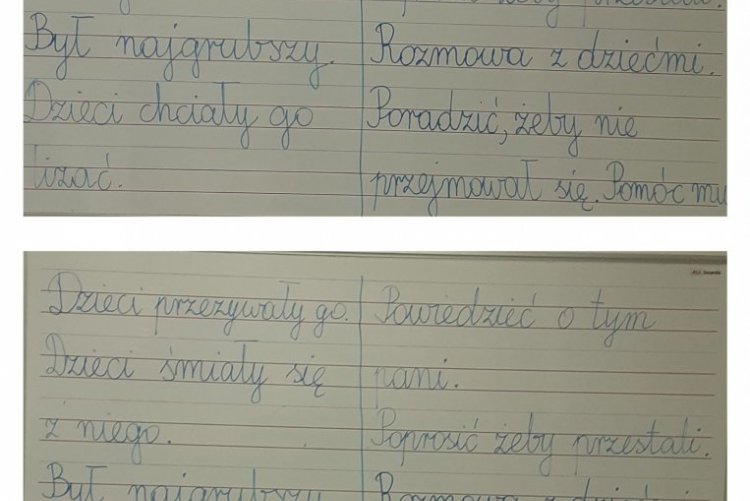 Był najgrubszy. Rozmowa z dziećmi.
Dzieci chciały go Poradzić, żeby nie
lizać. przejmował się. Pomóc mu
Dzieci przezywały go. Powiedzieć o tym
Dzieci śmiały się pani.
z niego. Poprosić żeby przestali.
Był najgrubszy Rozmowa z